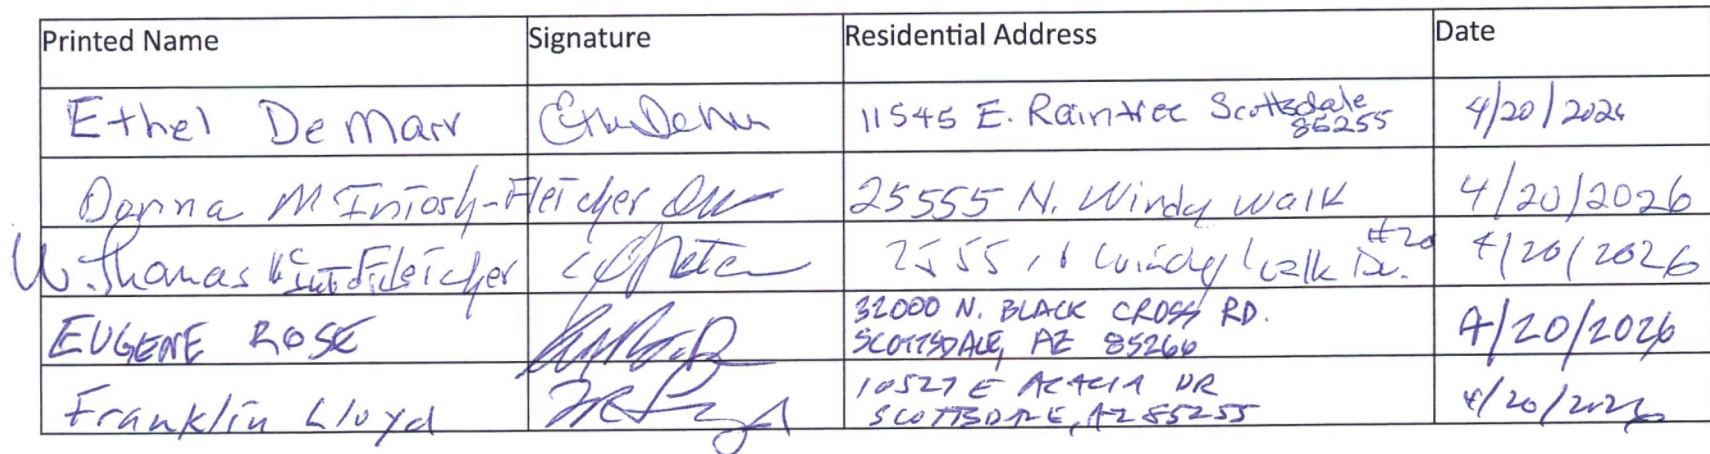 Printed Name Signature Residential Address Date
Ethel DeMarr 11545 E. Raintree Scottsdale 85255 4/20/2026
Donna McIntosh-Fleicher 25555 N. Windy Walk 4/20/2026
W. Thomas Fleicher 2555 N Windy Walk Dr. #20 4/20/2026
EUGENE ROSE 32000 N. BLACK CROSS RD. 4/20/2026
SCOTTSDALE, AZ 85266
Franklin Lloyd 10527 E ACACIA DR 4/20/2026
SCOTTSDALE, AZ 85255